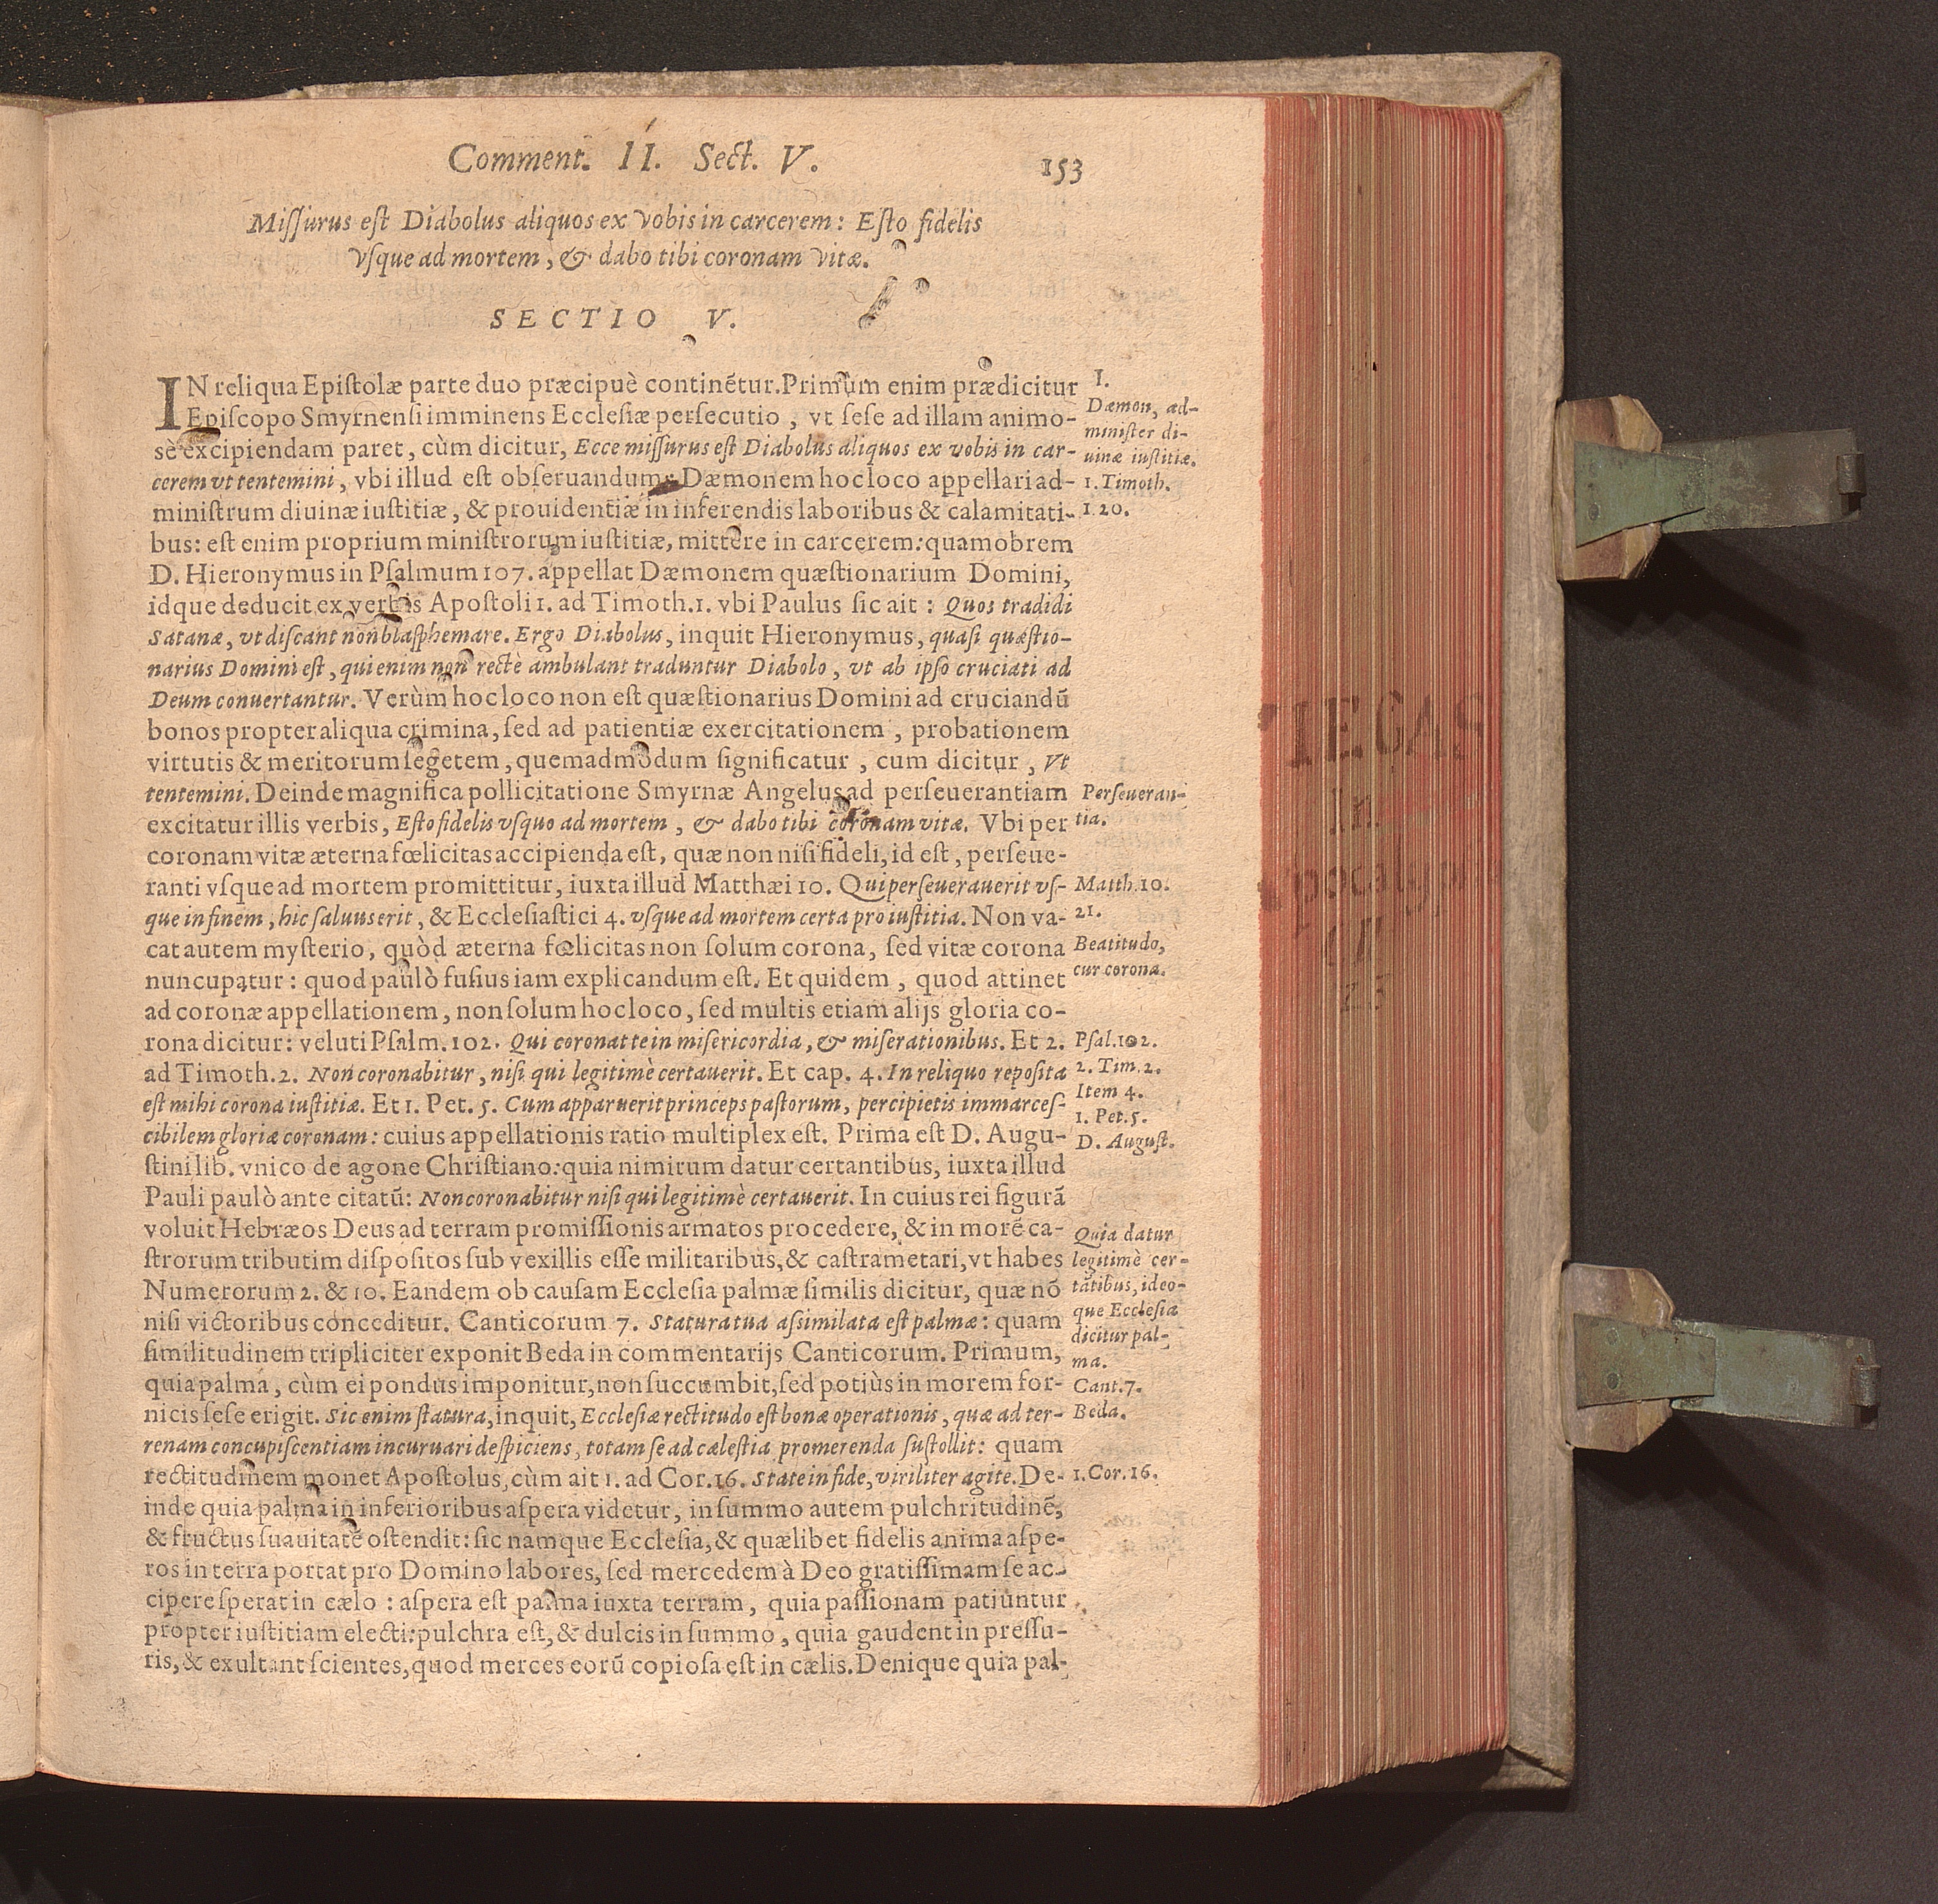 Comment. II. Sect. V. 153
Miſſurus eſt Diabolus aliquos ex vobis in carcerem: Eſto fidelis
vſque ad mortem, & dabo tibi coronam vitæ.
SECTIO V.
IN reliqua Epiſtolæ parte duo præcipuè continẽtur. Primum enim prædicitur
Epiſcopo Smyrnenſi imminens Eccleſiæ perſecutio, vt ſeſe ad illam animo-
sè excipiendam paret, cùm dicitur, Ecce miſſurus eſt Diabolus aliquos ex vobis in car-
cerem vt tentemini, vbi illud eſt obſeruandum: Dæmonem hoc loco appellari ad-
miniſtrum diuinæ iuſtitiæ, & prouidentiæ in inferendis laboribus & calamitati-
bus: eſt enim proprium miniſtrorum iuſtitiæ, mittere in carcerem: quamobrem
D. Hieronymus in Pſalmum 107. appellat Dæmonem quæſtionarium Domini,
idque deducit ex verbis Apoſtoli 1. ad Timoth. 1. vbi Paulus ſic ait: Quos tradidi
Satanæ, vt diſcant non blaſphemare. Ergo Diabolus, inquit Hieronymus, quaſi quæſtio-
narius Domini eſt, qui enim non rectè ambulant traduntur Diabolo, vt ab ipſo cruciati ad
Deum conuertantur. Verùm hoc loco non eſt quæſtionarius Domini ad cruciandũ
bonos propter aliqua crimina, ſed ad patientiæ exercitationem, probationem
virtutis & meritorum ſegetem, quemadmodum ſignificatur, cum dicitur, Vt
tentemini. Deinde magnifica pollicitatione Smyrnæ Angelus ad perſeuerantiam
excitatur illis verbis, Eſto fidelis vſquo ad mortem, & dabo tibi coronam vitæ. Vbi per
coronam vitæ æterna fœlicitas accipienda eſt, quæ non niſi fideli, id eſt, perſeue-
ranti vſque ad mortem promittitur, iuxta illud Matthæi 10. Qui perſeuerauerit vſ-
que in finem, hic ſaluus erit, & Eccleſiaſtici 4. vſque ad mortem certa pro iuſtitia. Non va-
cat autem myſterio, quòd æterna fœlicitas non ſolum corona, ſed vitæ corona
nuncupatur: quod paulò fuſius iam explicandum eſt. Et quidem, quod attinet
ad coronæ appellationem, non ſolum hoc loco, ſed multis etiam alijs gloria co-
rona dicitur: veluti Pſalm. 102. Qui coronat te in miſericordia, & miſerationibus. Et 2.
ad Timoth. 2. Non coronabitur, niſi qui legitimè certauerit. Et cap. 4. In reliquo repoſita
eſt mihi corona iuſtitiæ. Et 1. Pet. 5. Cum apparuerit princeps paſtorum, percipietis immarceſ-
cibilem gloriæ coronam: cuius appellationis ratio multiplex eſt. Prima eſt D. Augu-
ſtini lib. vnico de agone Chriſtiano: quia nimirum datur certantibus, iuxta illud
Pauli paulò ante citatũ: Non coronabitur niſi qui legitimè certauerit. In cuius rei figurã
voluit Hebræos Deus ad terram promiſſionis armatos procedere, & in morẽ ca-
ſtrorum tributim diſpoſitos ſub vexillis eſſe militaribus, & caſtrametari, vt habes
Numerorum 2. & 10. Eandem ob cauſam Eccleſia palmæ ſimilis dicitur, quæ nõ
niſi victoribus conceditur. Canticorum 7. Statura tua aſſimilata eſt palmæ: quam
ſimilitudinem tripliciter exponit Beda in commentarijs Canticorum. Primum,
quia palma, cùm ei pondus imponitur, non ſuccumbit, ſed potiùs in morem for-
nicis ſeſe erigit. Sic enim ſtatura, inquit, Eccleſiæ rectitudo eſt bonæ operationis, quæ ad ter-
renam concupiſcentiam incuruari deſpiciens, totam ſe ad cæleſtia promerenda ſuſtollit: quam
rectitudinem monet Apoſtolus, cùm ait 1. ad Cor. 16. State in fide, viriliter agite. De-
inde quia palma in inferioribus aſpera videtur, in ſummo autem pulchritudinẽ,
& fructus ſuauitatẽ oſtendit: ſic namque Eccleſia, & quælibet fidelis anima aſpe-
ros in terra portat pro Domino labores, ſed mercedem à Deo gratiſſimam ſe ac-
cipere ſperat in cælo: aſpera eſt palma iuxta terram, quia paſſionam patiuntur
propter iuſtitiam electi: pulchra eſt, & dulcis in ſummo, quia gaudent in preſſu-
ris, & exultant ſcientes, quod merces eorũ copioſa eſt in cælis. Denique quia pal-
1.
Dæmon, ad-
miniſter di-
uinæ iuſtitiæ.
1. Timoth.
1 20.
Perſeueran-
tia.
Matth. 10.
21.
Beatitudo,
cur corona.
Pſal. 102.
2. Tim. 2.
Item 4.
1. Pet. 5.
D. Auguſt.
Quia datur
legitimè cer-
tãtibus, ideo-
que Eccleſia
dicitur pal-
ma.
Cant. 7.
Beda.
1. Cor. 16.